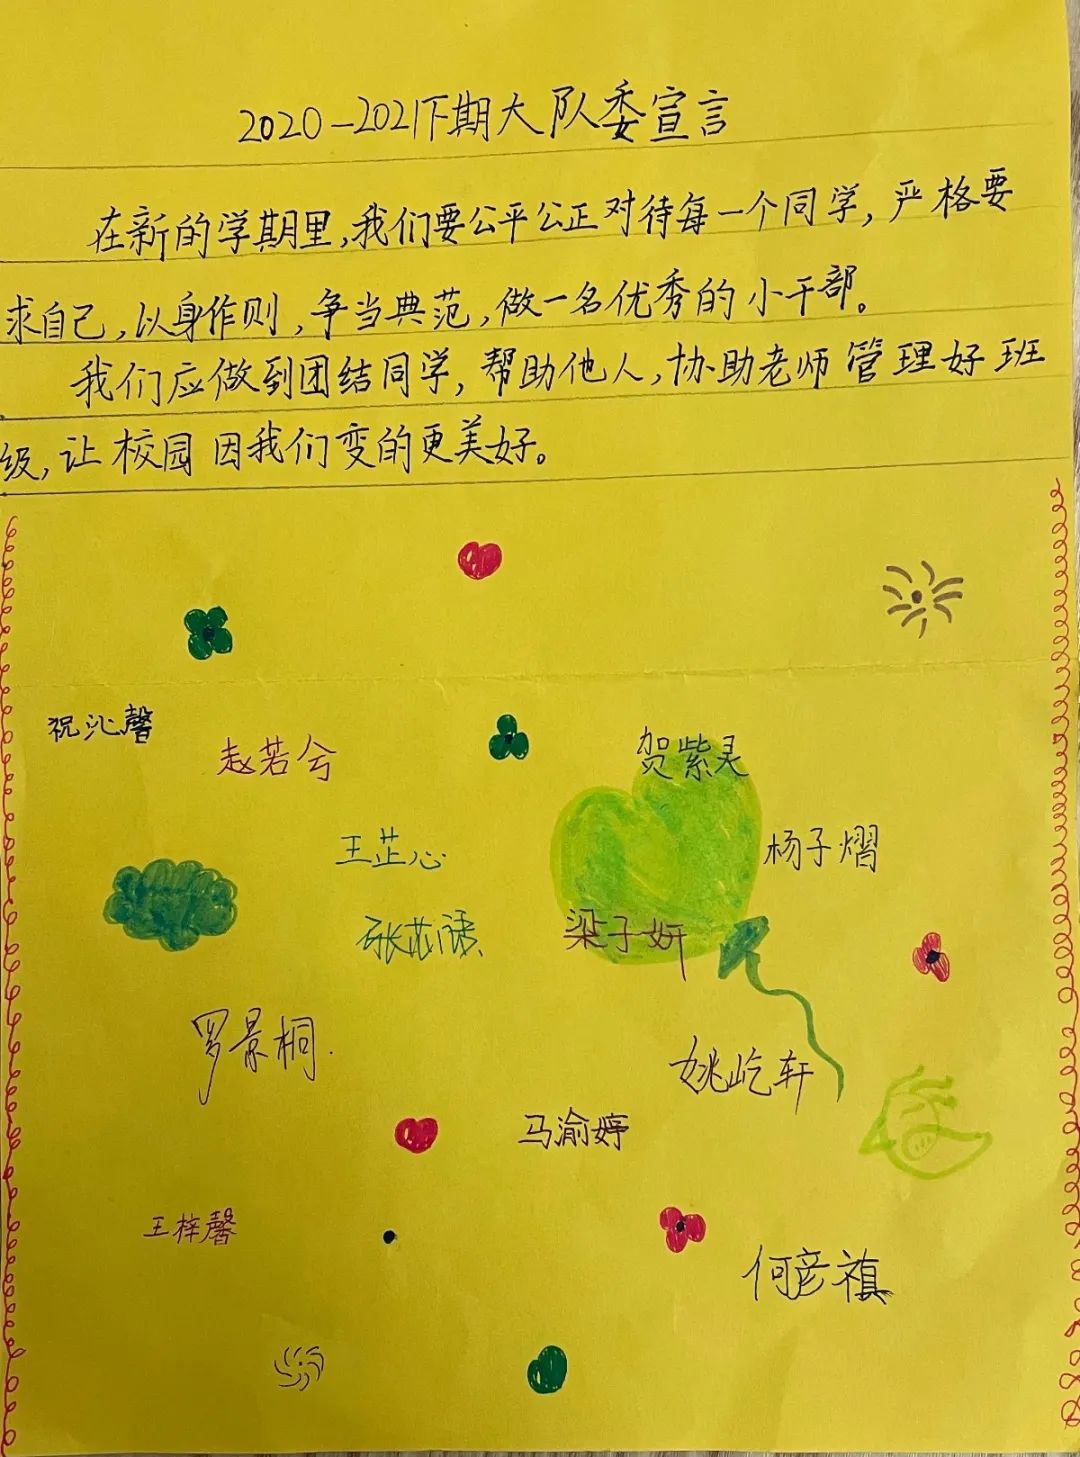 2020-2021下期大队委宣言
在新的学期里,我们要公平公正对待每一个同学,严格要
求自己,以身作则,争当典范,做一名优秀的小干部。
我们应做到团结同学,帮助他人,协助老师管理好班
级,让校园因我们变的更美好。
祝沁馨
赵若兮
贺紫灵
王芷心
杨子熠
张芯语
梁子妍
罗景桐.
姚屹轩
马渝婷
王梓馨
何彦禛